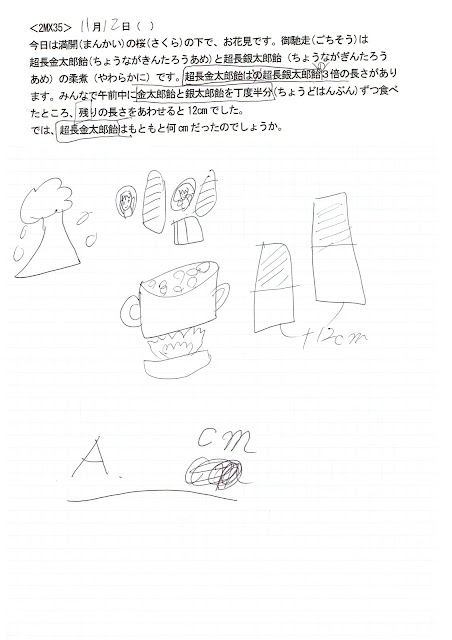 <2MX35> 11月12日( )
今日は満開(まんかい)の桜(さくら)の下で、お花見です。御馳走(ごちそう)は
超長金太郎飴(ちょうながきんたろうあめ)と超長銀太郎飴(ちょうながぎんたろう
あめ)の柔煮(やわらかに)です。超長金太郎飴はの超長銀太郎飴3倍の長さがあり
ます。みんなで午前中に金太郎飴と銀太郎飴を丁度半分(ちょうどはんぶん)ずつ食べ
たところ、残りの長さをあわせると12cmでした。
では、超長金太郎飴はもともと何cmだったのでしょうか。
12cm
A. cm